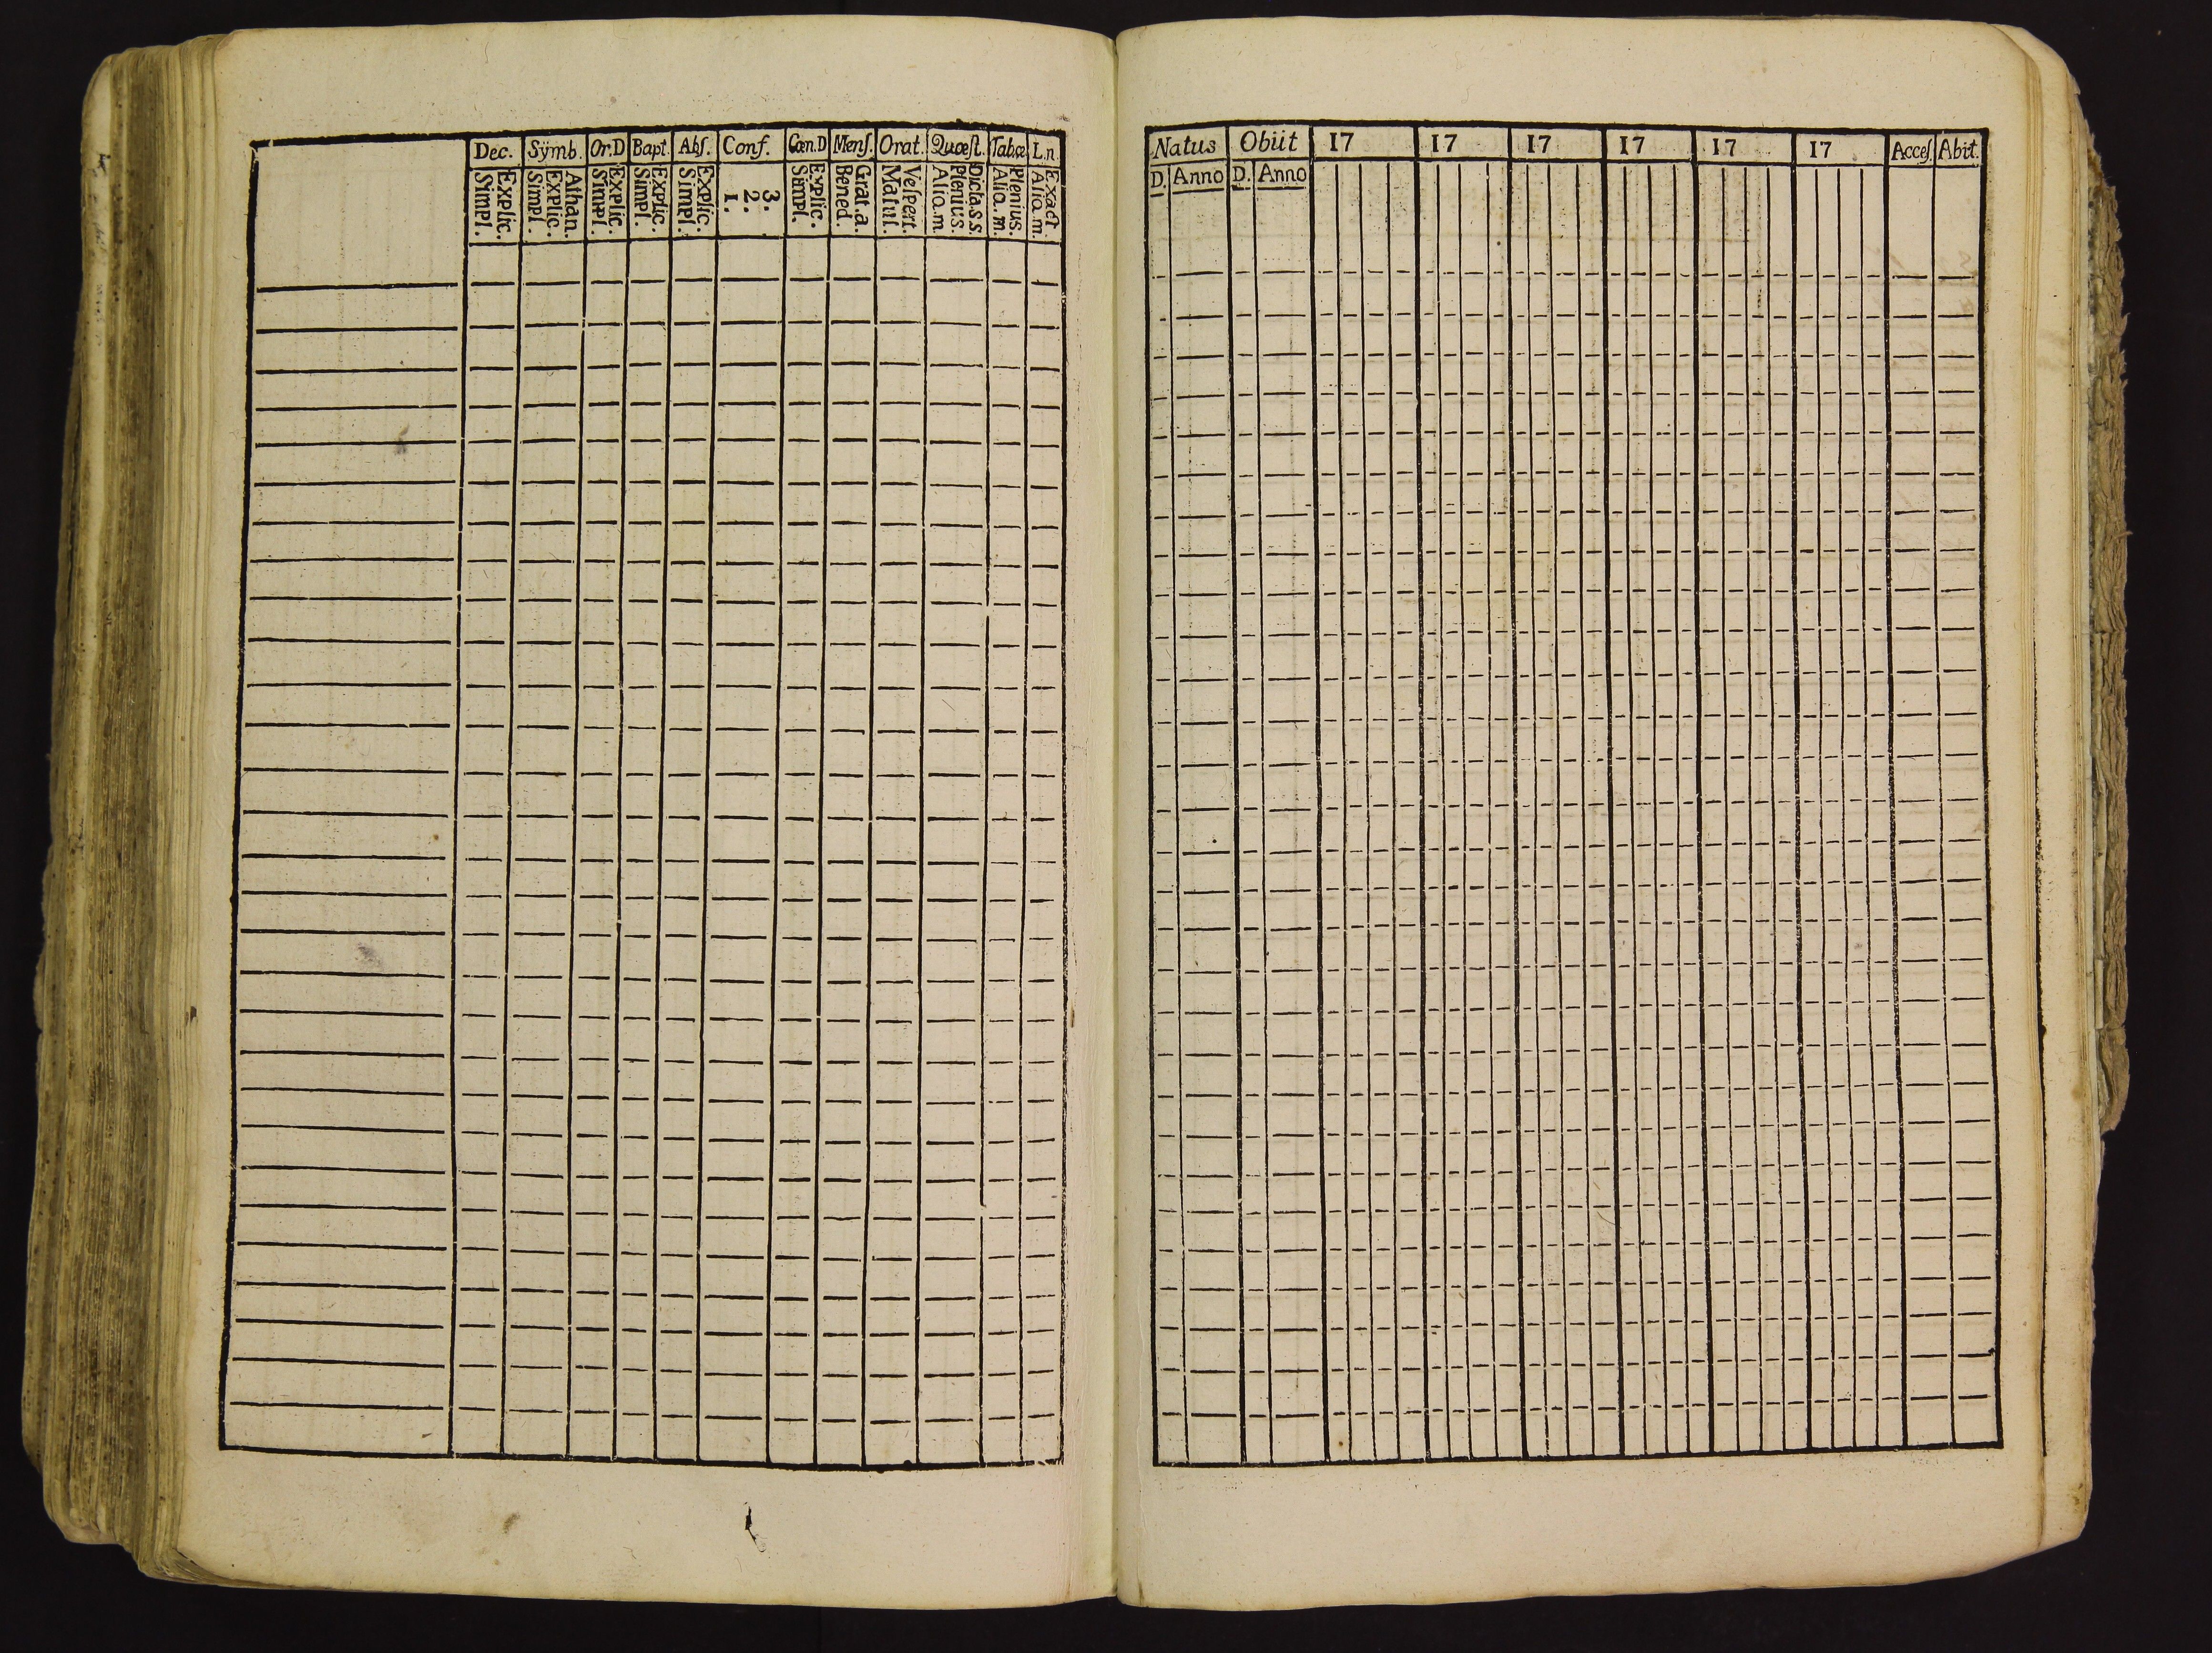 Dec. Sÿmb. Or.D Bapt. Abſ. Conf. Cœn.D Menſ. Orat. Quæſt. Tabœ L.n.
Simpl. Explic. Simpl. Explic. Athan. Simpl. Explic. Simpl. Explic. Simpl. Explic. 1. 2. 3. Simpl. Explic. Bened. Grat.a. Matut. Veſpert. Aliq.m. Plenius. Dicta.s.s. Aliq.m. Plenius. Aliq.m. Exact.
Natus Obiit 17 17 17 17 17 17 Acceſ. Abit.
D. Anno D. Anno